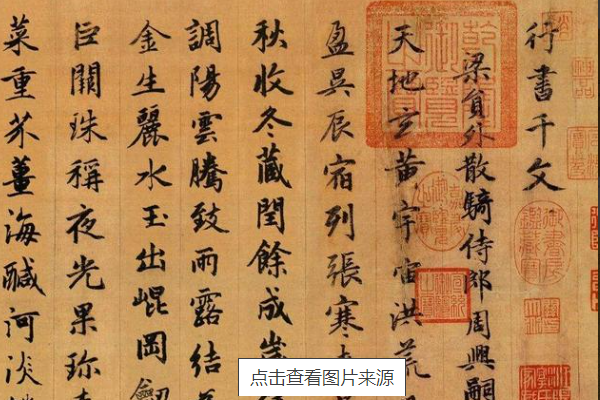 行書千文
梁員外散騎侍郎周興嗣
天地玄黃宇宙洪荒
盈昃辰宿列張寒
秋收冬藏閏餘成歲
調陽雲騰致雨露結
金生麗水玉出崐岡劍
巨闕珠稱夜光果珍
菜重芥薑海醎河淡
点击查看图片来源